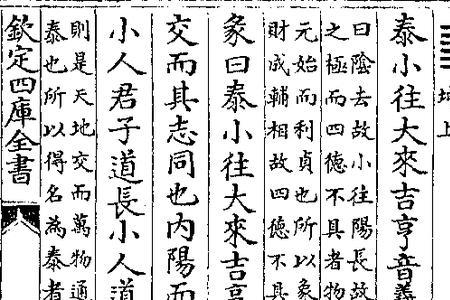 坤上
泰小往大來吉亨音義
曰陰去故小往陽長故
之極而四德不具者物
元始而利貞也所以象
財成輔相故四德不具
彖曰泰小往大來吉亨
交而其志同也內陽而
小人君子道長小人道
則是天地交而萬物通
泰也所以得名為泰者
欽定四庫全書